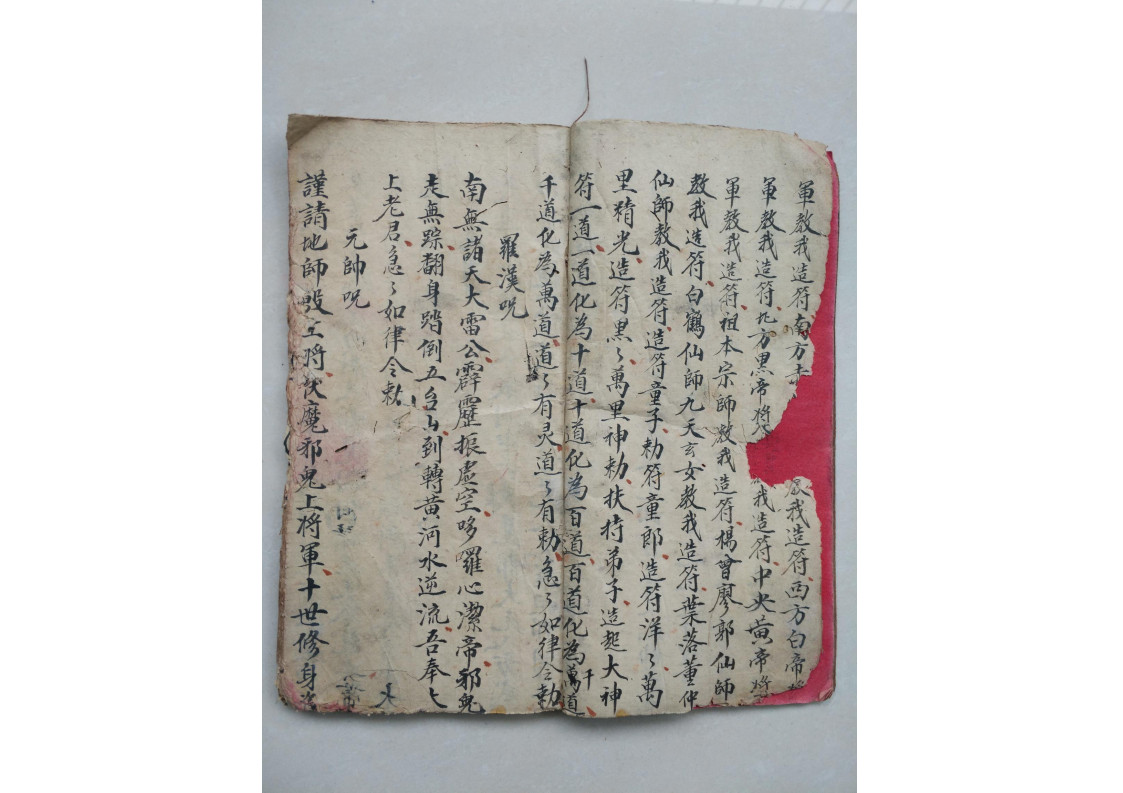 軍教我造符南方赤 教我造符西方白帝將
軍教我造符北方黑帝將 我造符中央黃帝將
軍教我造符祖本宗師教我造符楊曾廖郭仙師
教我造符白鶴仙師九天玄女教我造符葉落董仲
仙師教我造符造符童子勅符童郎造符洋〻萬
里精光造符黑〻萬里神勅扶持弟子造起大神
符一道一道化為十道十道化為百道百道化為千萬道
千道化為萬道道〻有灵道〻有勅急〻如律令勅
羅漢咒
南無諸天大雷公霹靂振虛空哆囉心潔帝邪鬼
走無踪翻身踏倒五台山到轉黃河水逆流吾奉太
上老君急〻如律令勅
元帥呪
謹請地師殷元將伏魔邪鬼上將軍十世修身